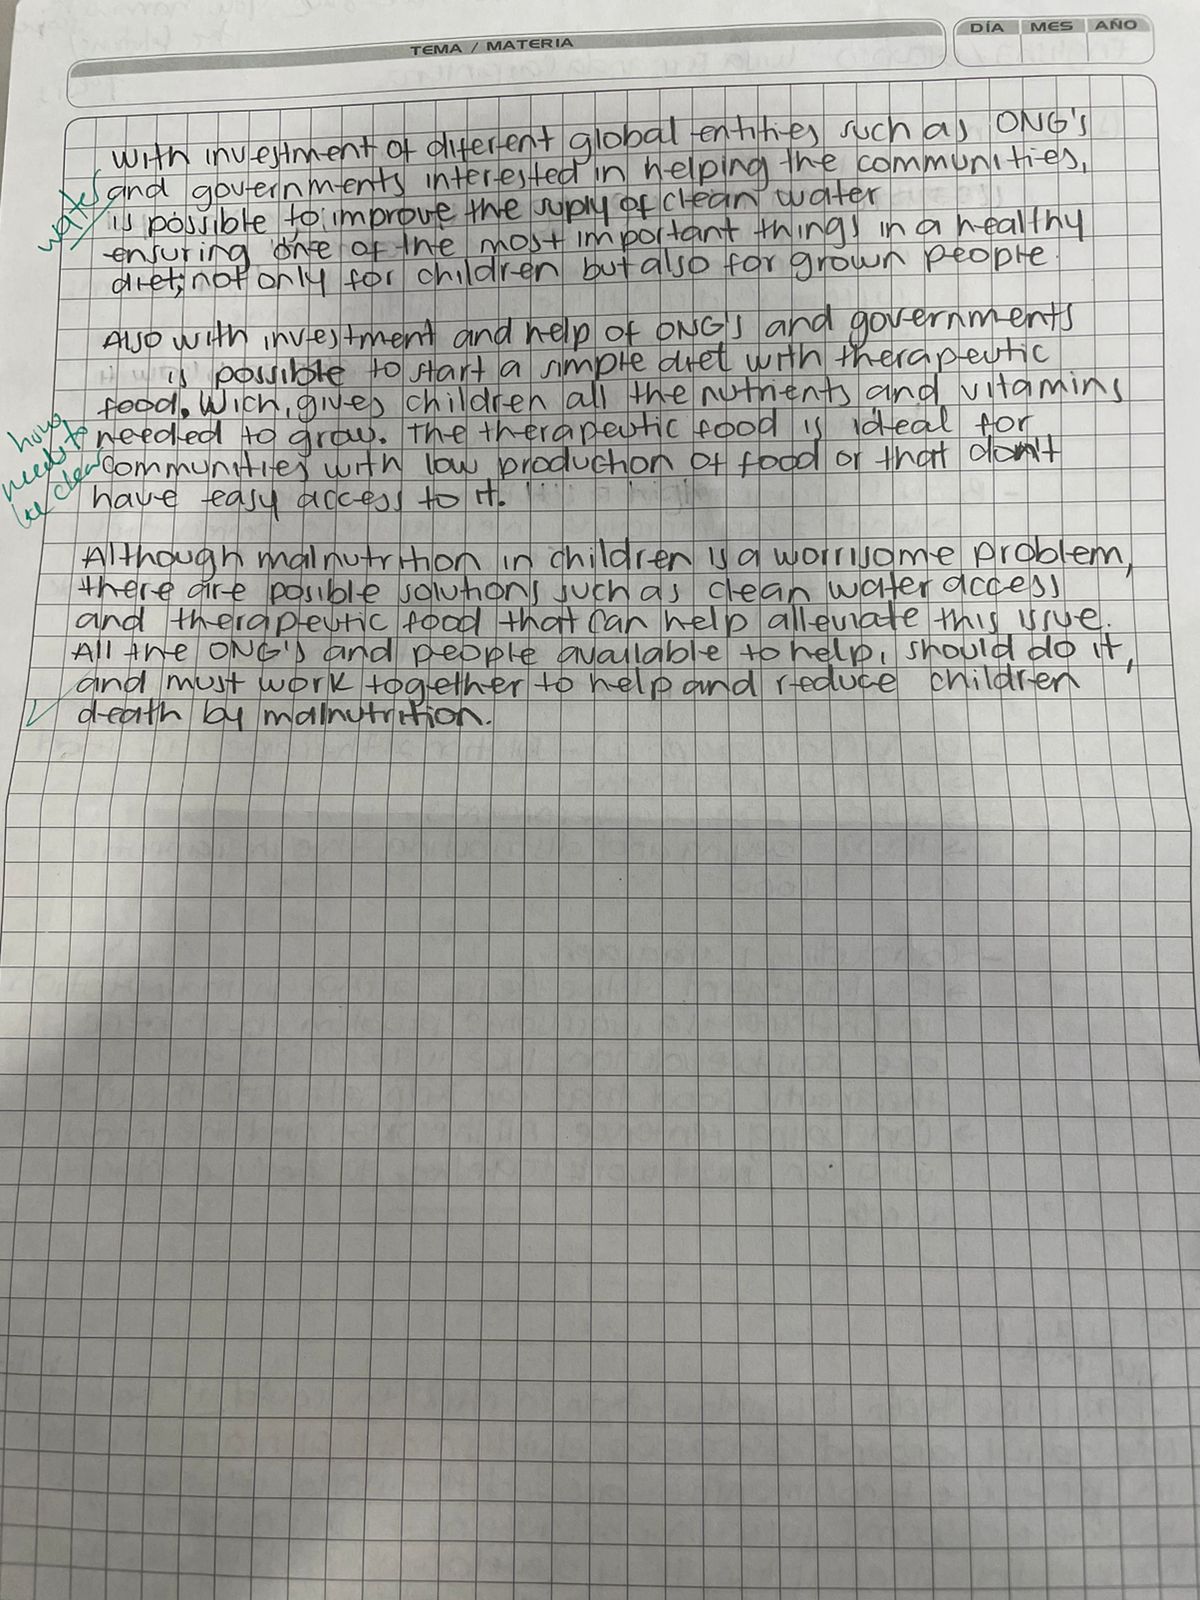 TEMA / MATERIA
DÍA MES AÑO
With investment of diferent global entities such as ONG's
and governments interested in helping the communities,
is possible to improve the suply of clean water
ensuring one of the most important things in a healthy
diet; not only for children but also for grown people.
water
Also with investment and help of ONG's and governments
is possible to start a simple diet with therapeutic
food. Wich, gives children all the nutrients and vitamins
needed to grow. The therapeutic food is ideal for
communities with low production of food or that don't
have easy access to it.
how
needs to
be clear
Although malnutrition in children is a worrisome problem,
there are posible solutions such as clean water access
and therapeutic food that can help alleviate this issue.
All the ONG's and people available to help, should do it,
and must work together to help and reduce children
death by malnutrition.